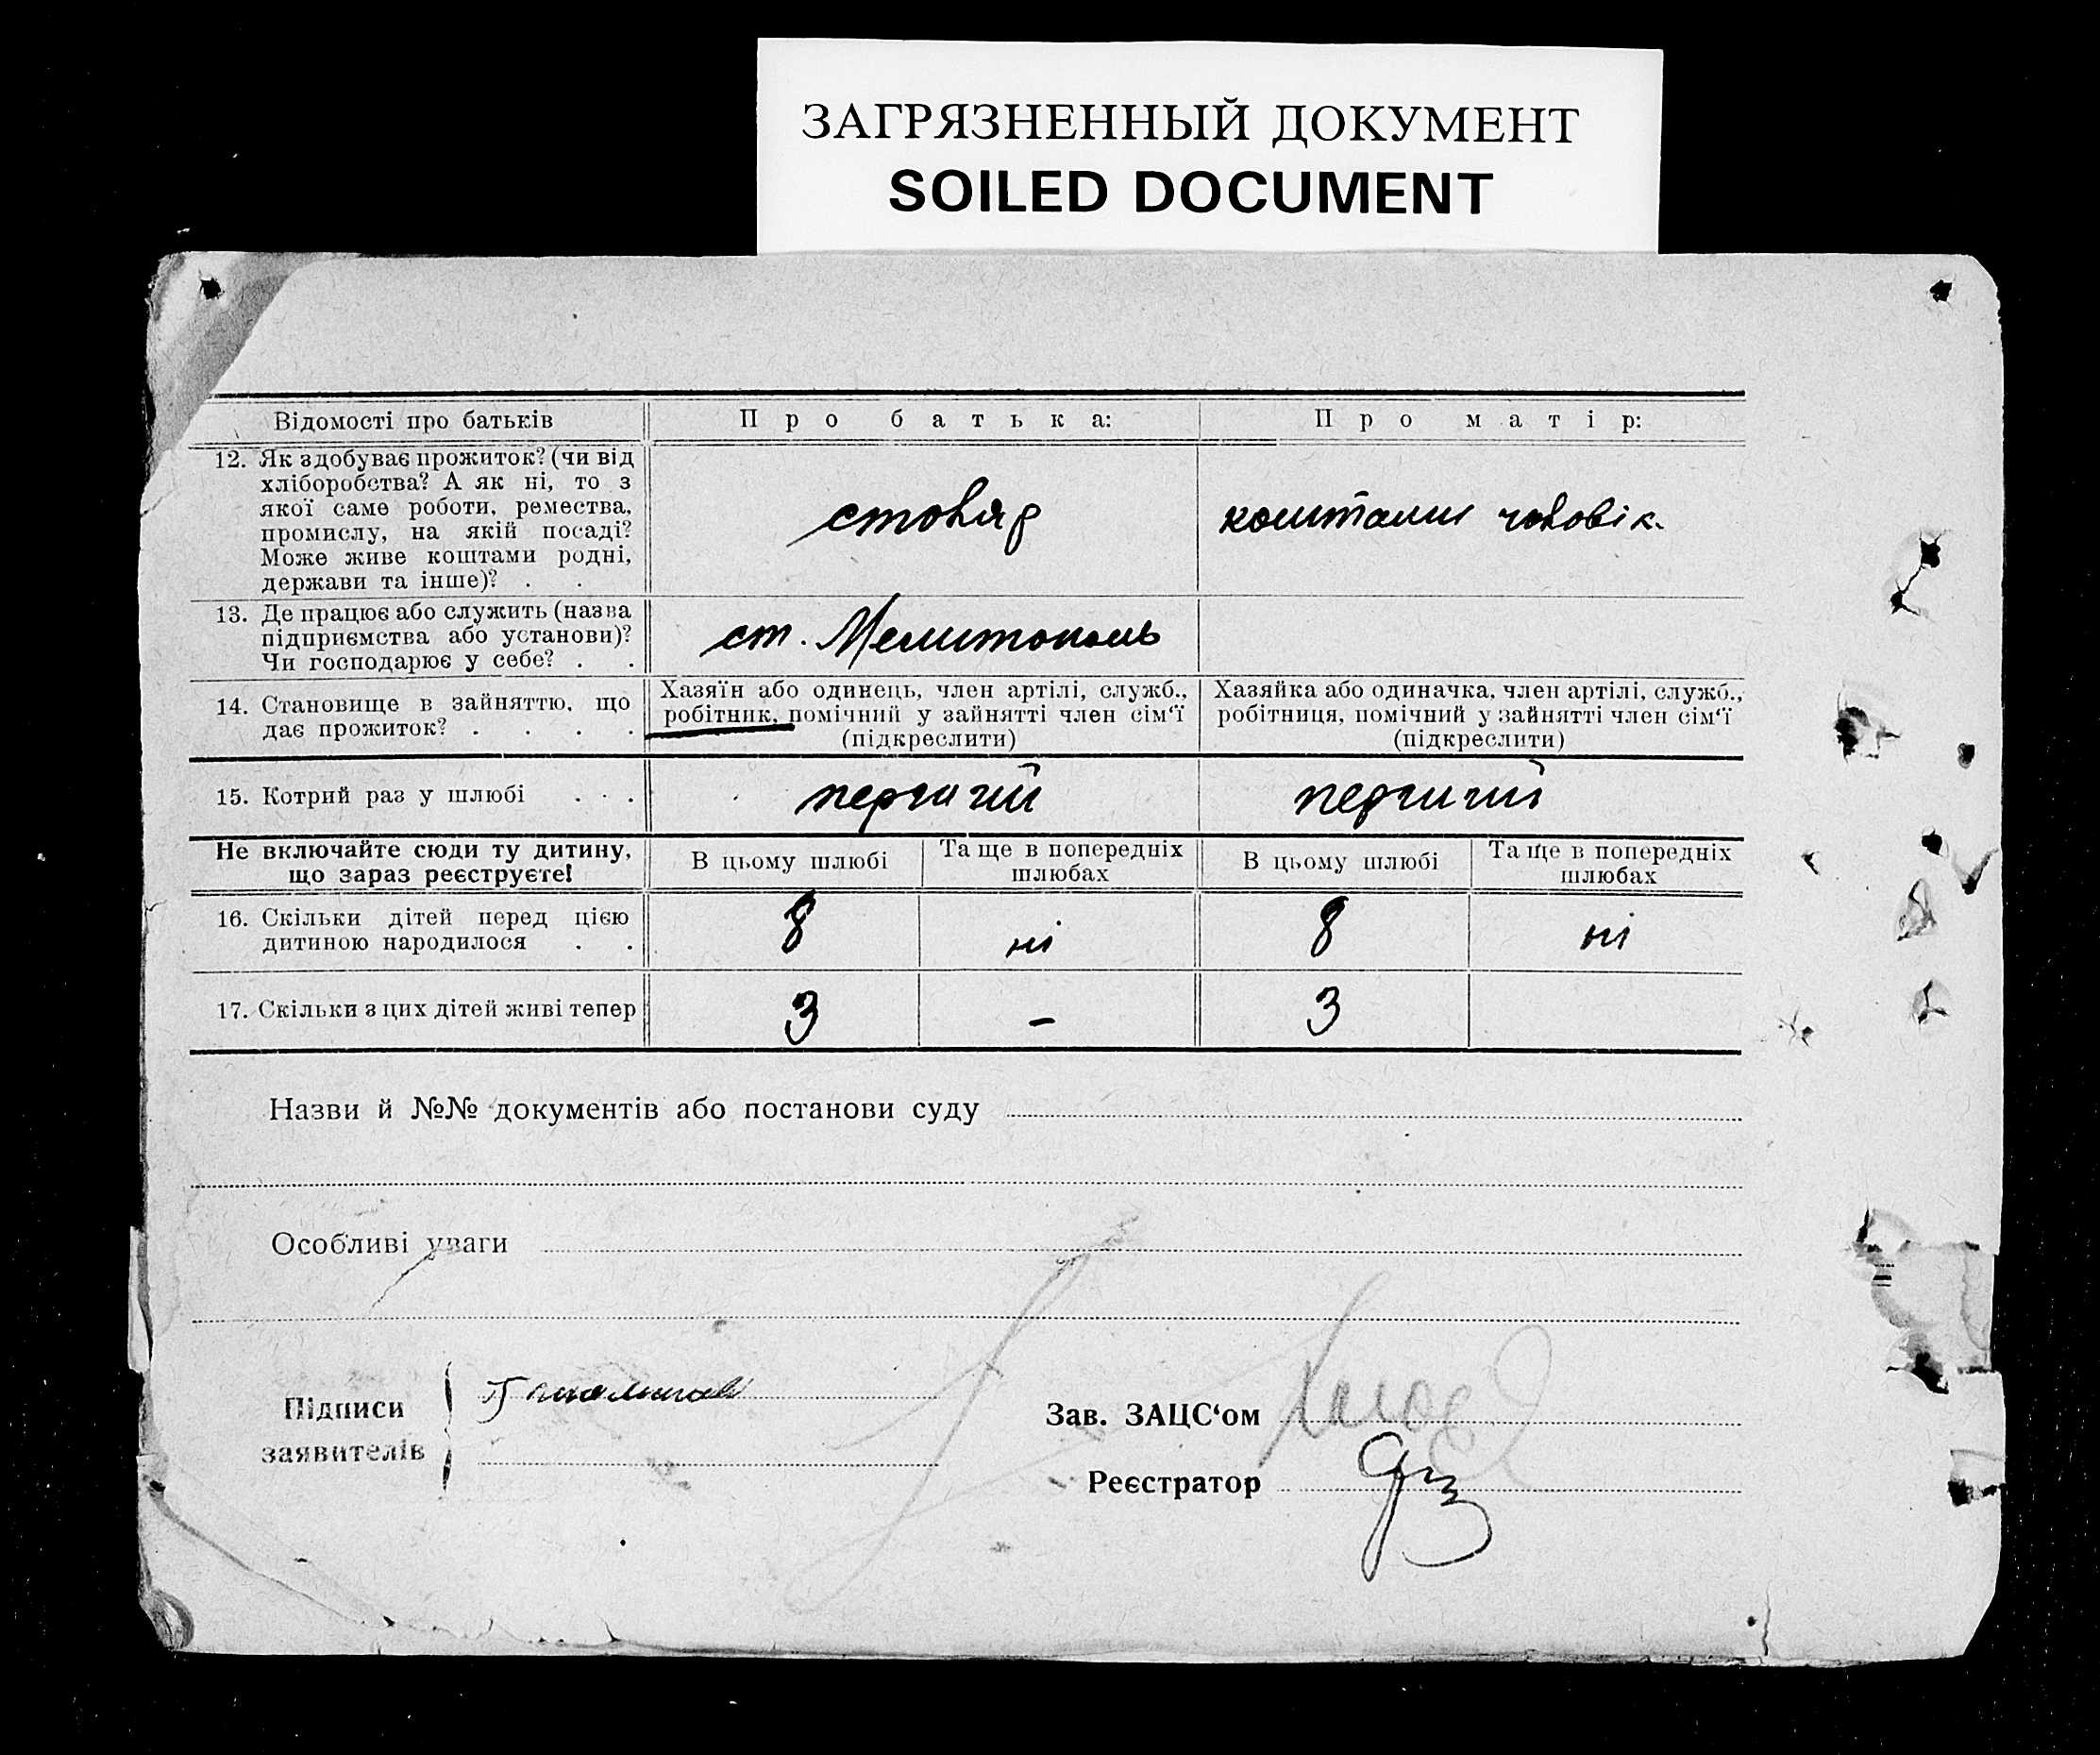 ЗАГРЯЗНЕННЫЙ ДОКУМЕНТ
SOILED DOCUMENT
Відомості про батьків
Про батька:
Про матір:
12. Як здобуває прожиток? (чи від
хліборобства? А як ні, то з
якої саме роботи, ремества,
промислу, на якій посаді?
Може живе коштами родні,
держави та інше)? . .
столяр
коштами чоловік.
13. Де працює або служить (назва
підприємства або установи)?
Чи господарює у себе? . .
ст. Мелитополь
14. Становище в зайняттю, що
дає прожиток? . . . .
Хазяїн або одинець, член артілі, служб.,
робітник, помічний у зайнятті член сім‘ї
(підкреслити)
Хазяйка або одиначка, член артілі, служб.,
робітниця, помічний у зайнятті член сім‘ї
(підкреслити)
15. Котрий раз у шлюбі . . .
перший
перший
Не включайте сюди ту дитину,
що зараз реєструєте!
В цьому шлюбі
Та ще в попередніх
шлюбах
В цьому шлюбі
Та ще в попередніх
шлюбах
16. Скільки дітей перед цією
дитиною народилося . .
8
ні
8
ні
17. Скільки з цих дітей живі тепер
3
–
3
Назви й №№ документів або постанови суду
Особливі уваги
Підписи
заявителів
Зав. ЗАЦС‘ом
Реєстратор